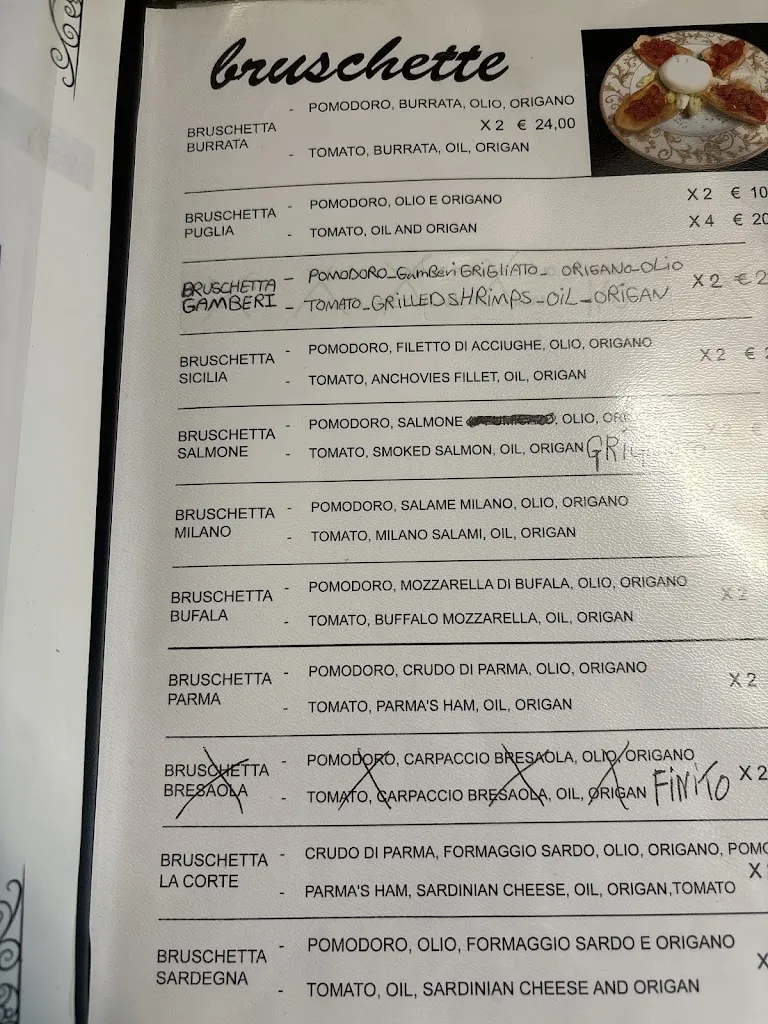 bruschette
BRUSCHETTA BURRATA
- POMODORO, BURRATA, OLIO, ORIGANO
X 2 € 24,00
- TOMATO, BURRATA, OIL, ORIGAN
BRUSCHETTA PUGLIA
- POMODORO, OLIO E ORIGANO
X 2 € 10
- TOMATO, OIL AND ORIGAN
X 4 € 20
BRUSCHETTA GAMBERI
- POMODORO_GAMBERI GRIGLIATO_ ORIGANO_OLIO
- TOMATO_GRILLED SHRIMPS_OIL_ORIGAN
X 2 € 2
BRUSCHETTA SICILIA
- POMODORO, FILETTO DI ACCIUGHE, OLIO, ORIGANO
X 2 €
- TOMATO, ANCHOVIES FILLET, OIL, ORIGAN
BRUSCHETTA SALMONE
- POMODORO, SALMONE , OLIO,
X 2 €
- TOMATO, SMOKED SALMON, OIL, ORIGAN
BRUSCHETTA MILANO
- POMODORO, SALAME MILANO, OLIO, ORIGANO
- TOMATO, MILANO SALAMI, OIL, ORIGAN
BRUSCHETTA BUFALA
- POMODORO, MOZZARELLA DI BUFALA, OLIO, ORIGANO
X 2
- TOMATO, BUFFALO MOZZARELLA, OIL, ORIGAN
BRUSCHETTA PARMA
- POMODORO, CRUDO DI PARMA, OLIO, ORIGANO
X 2
- TOMATO, PARMA'S HAM, OIL, ORIGAN
BRUSCHETTA BRESAOLA
- POMODORO, CARPACCIO BRESAOLA, OLIO, ORIGANO
X 2
- TOMATO, CARPACCIO BRESAOLA, OIL, ORIGAN FINITO
BRUSCHETTA LA CORTE
- CRUDO DI PARMA, FORMAGGIO SARDO, OLIO, ORIGANO, POMO
X
- PARMA'S HAM, SARDINIAN CHEESE, OIL, ORIGAN,TOMATO
BRUSCHETTA SARDEGNA
- POMODORO, OLIO, FORMAGGIO SARDO E ORIGANO
X
- TOMATO, OIL, SARDINIAN CHEESE AND ORIGAN